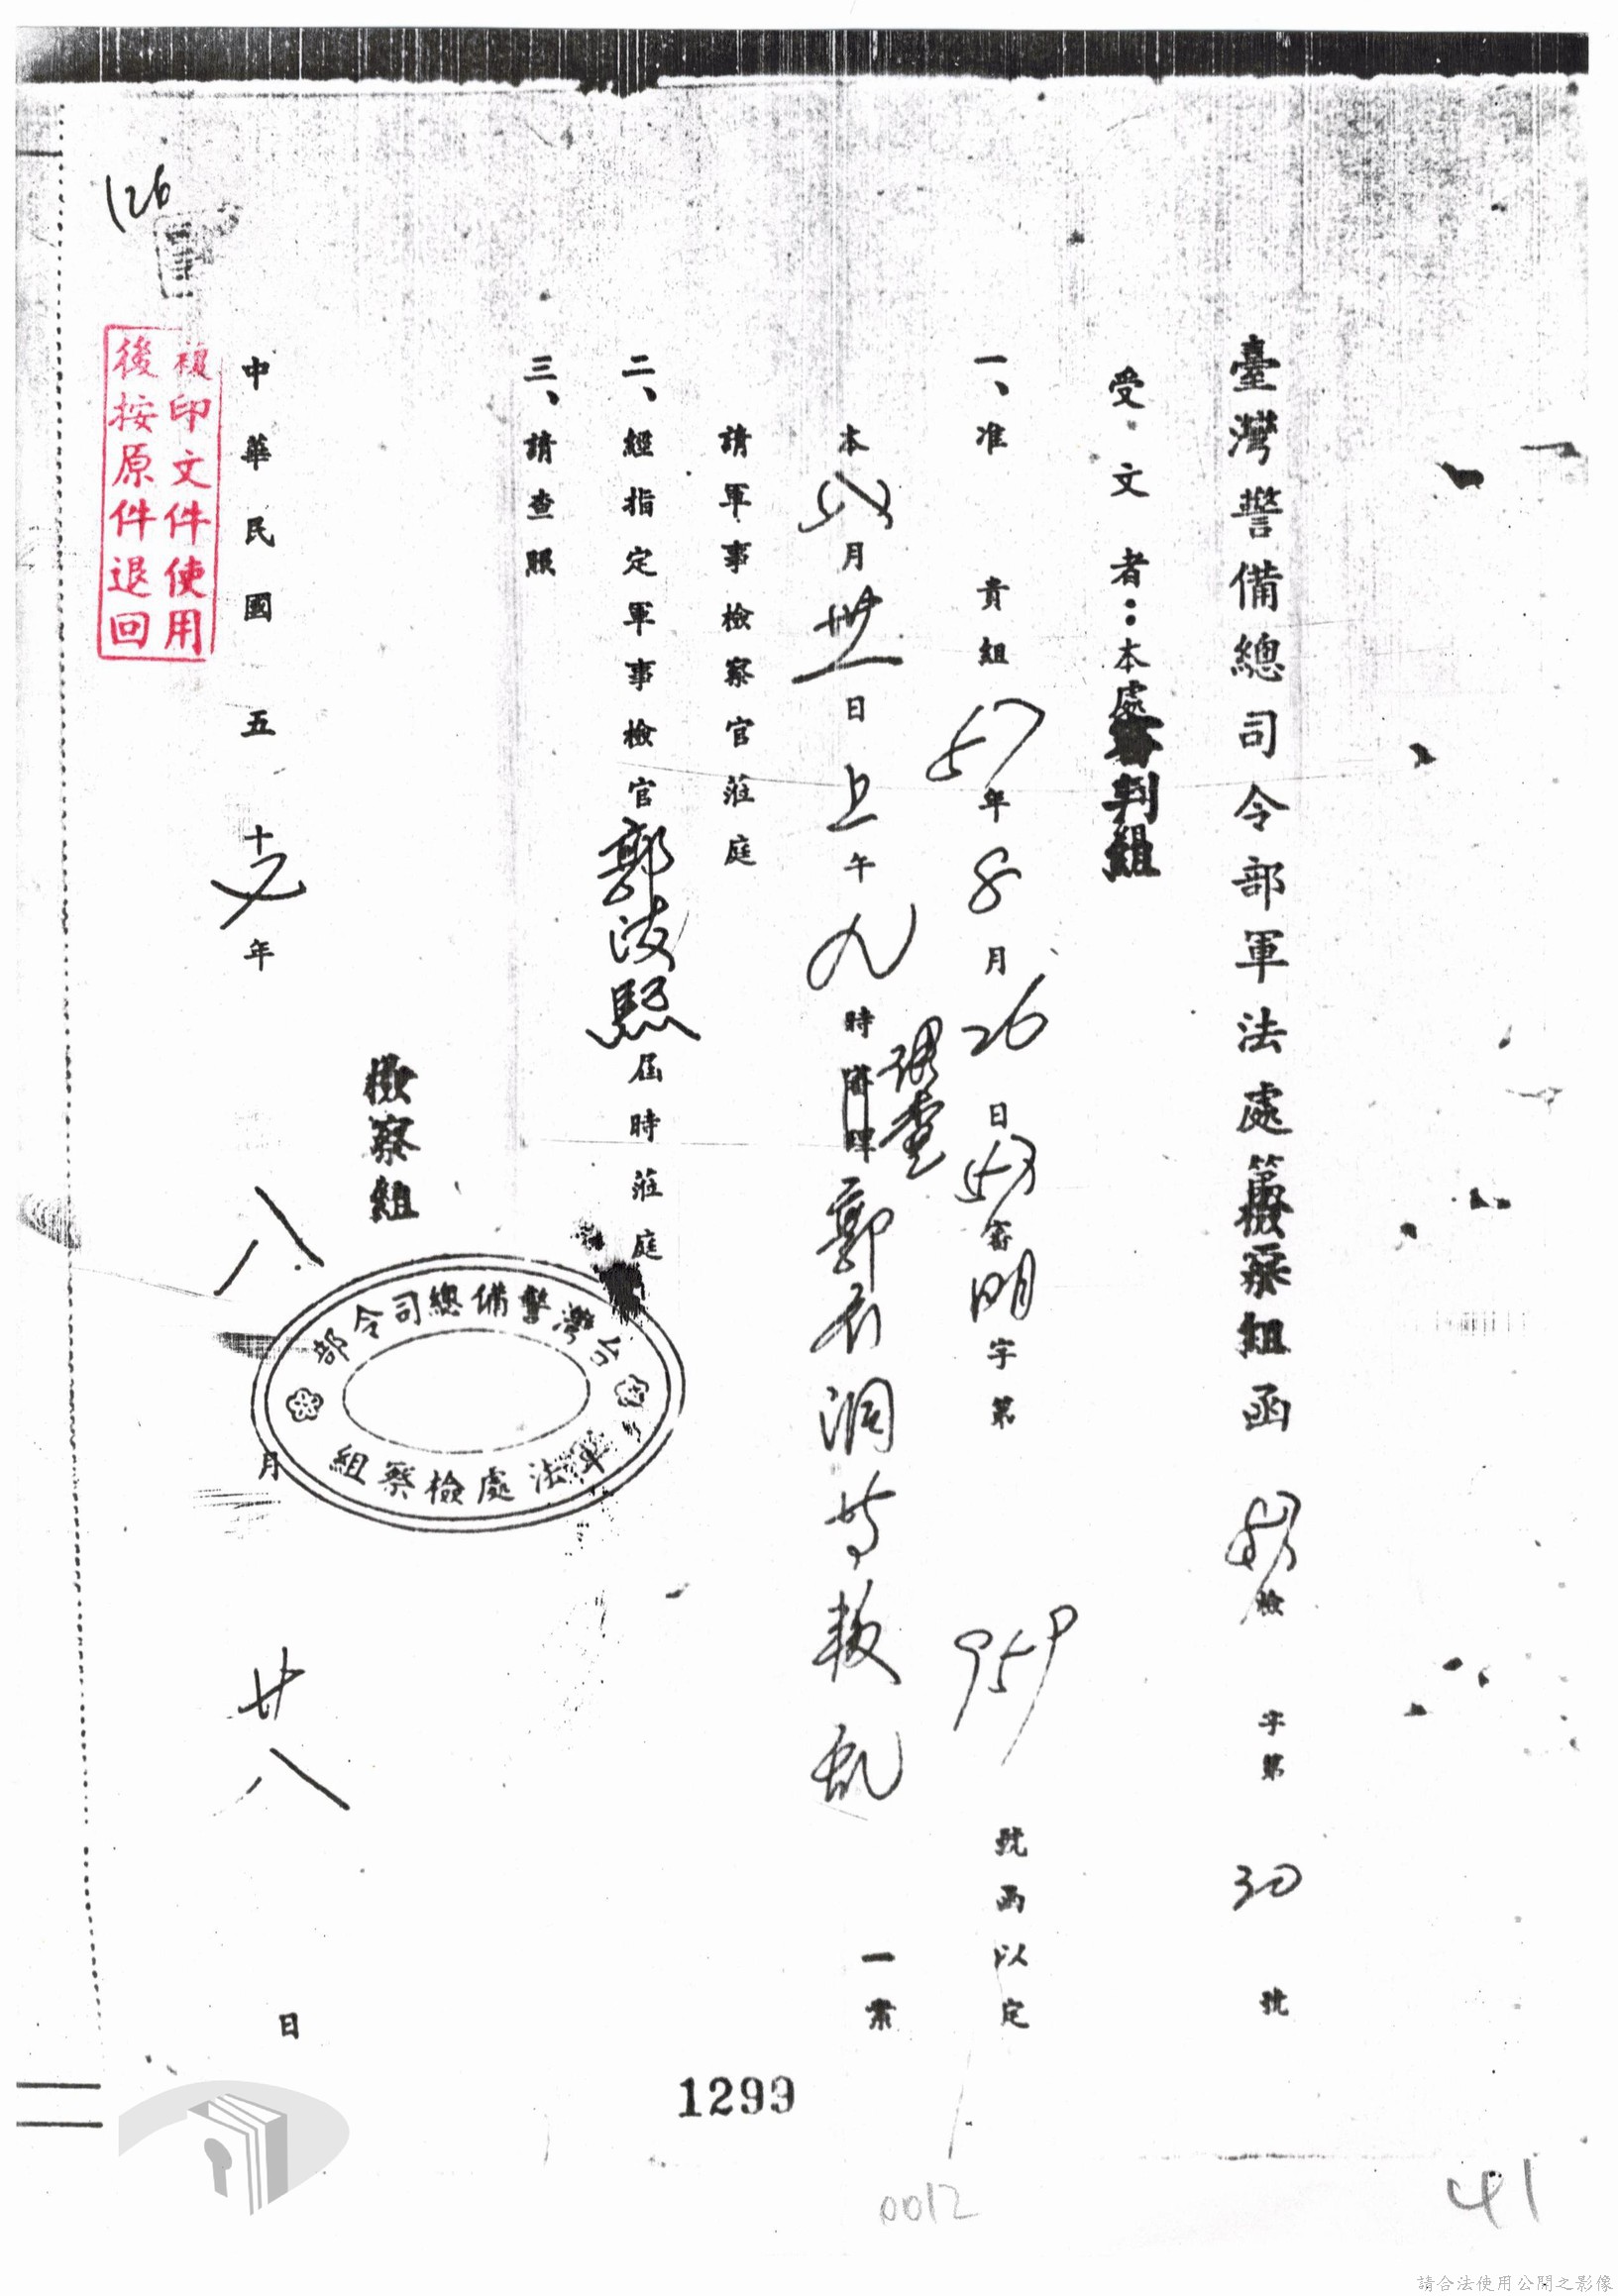 臺灣警備總司令部軍法處檢察組函 (57)檢 字第 30 號
受文者：本處審判組
一、准 貴組57年8月26日(57)審 字第 959 號函以定
本 月卅一日上午九時調查郭衣洞等叛乱 一案
請軍事檢察官蒞庭
二、經指定軍事檢官郭政熙屆時蒞庭
三、請查照
檢察組
台灣警備總司令部
軍法處檢察組
中華民國五十七年 八 月 廿八 日
複印文件使用
後按原件退回
126
1299
0012
41
請合法使用公開之影像